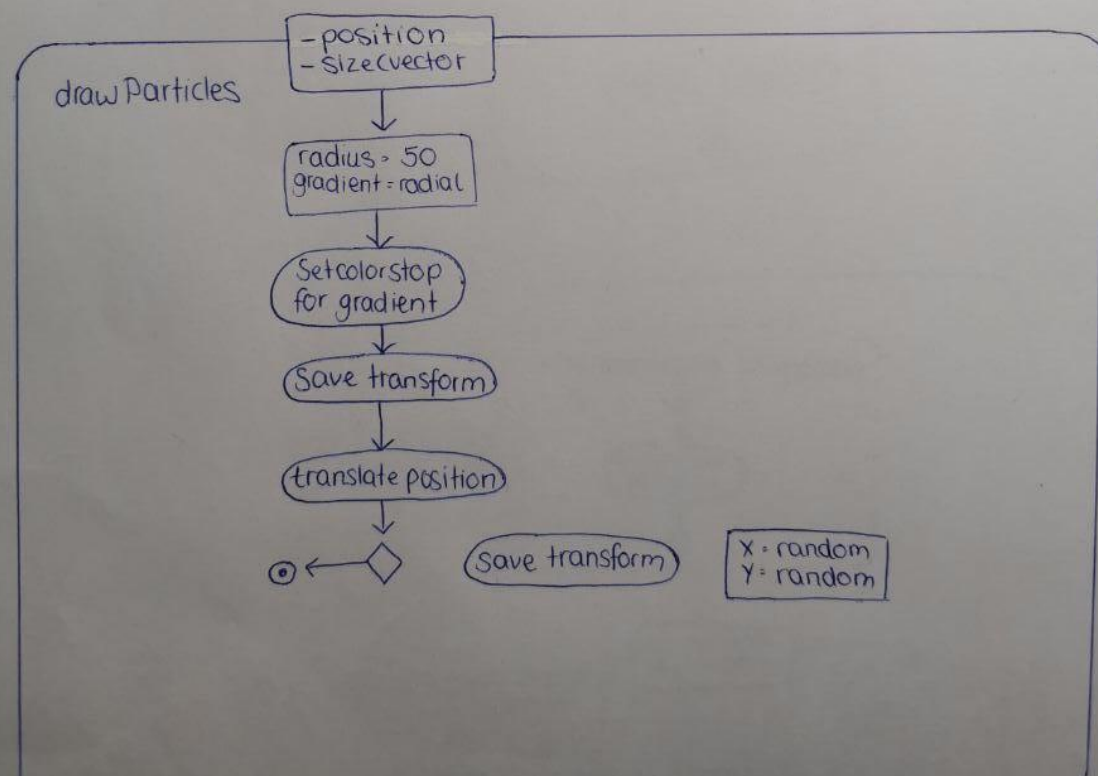 - position
- size(vector
drawParticles
radius = 50
gradient = radial
Setcolorstop
for gradient
Save transform
translate position
save transform
X = random
Y = random